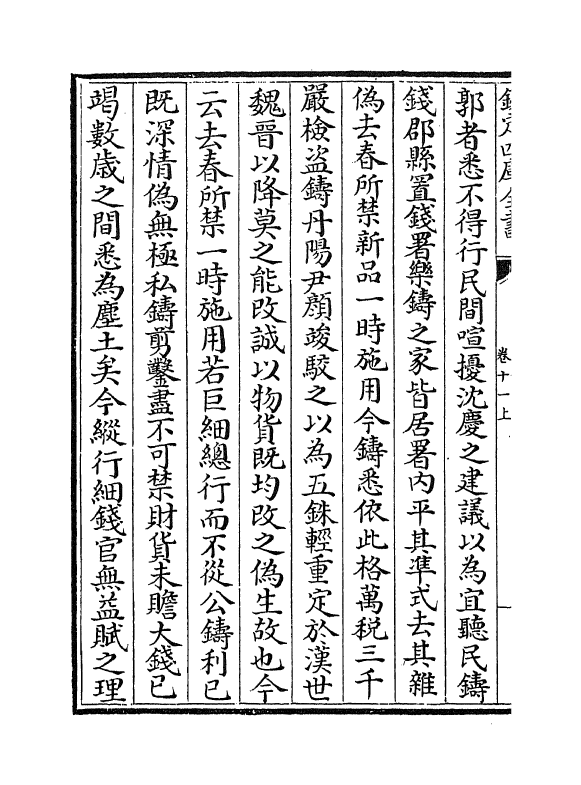 欽定四庫全書
卷十一上
郭者悉不得行民間喧擾沈慶之建議以為宜聽民鑄
錢郡縣置錢署樂鑄之家皆居署内平其準式去其雜
偽去春所禁新品一時施用今鑄悉依此格萬税三千
嚴檢盗鑄丹陽尹顔竣駮之以為五銖輕重定於漢世
魏晉以降莫之能改誠以物貨既均改之偽生故也今
云去春所禁一時施用若巨細總行而不從公鑄利已
既深情偽無極私鑄剪鑿盡不可禁財貨未贍大錢已
竭數歳之間悉為塵土矣今縱行細錢官無益賦之理